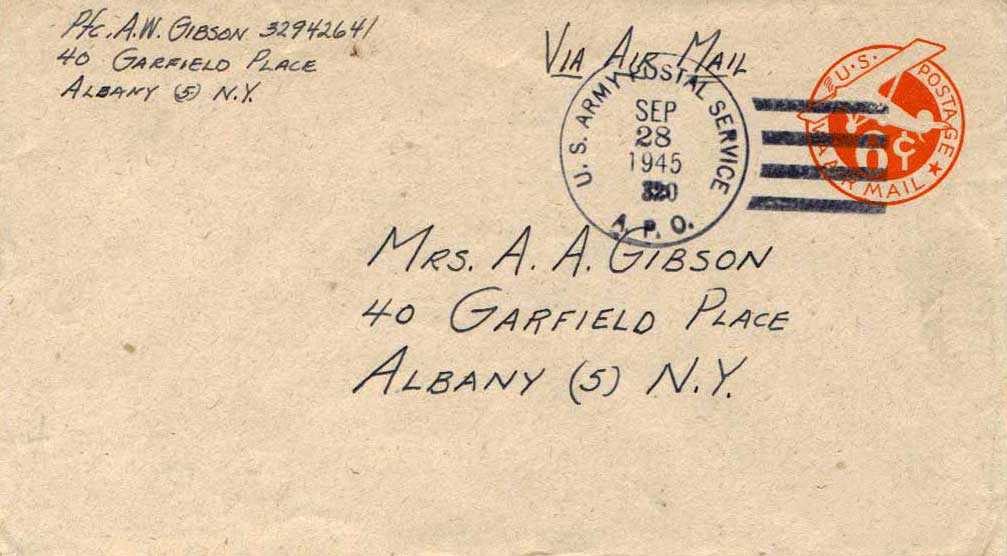 Pfc. A.W. GIBSON 32942641
40 GARFIELD PLACE
ALBANY (5) N.Y.
VIA AIR MAIL
U. S. ARMY POSTAL SERVICE
SEP
28
1945
A. P. O.
U.S. POSTAGE
6¢
VIA AIR MAIL
MRS. A. A. GIBSON
40 GARFIELD PLACE
ALBANY (5) N.Y.